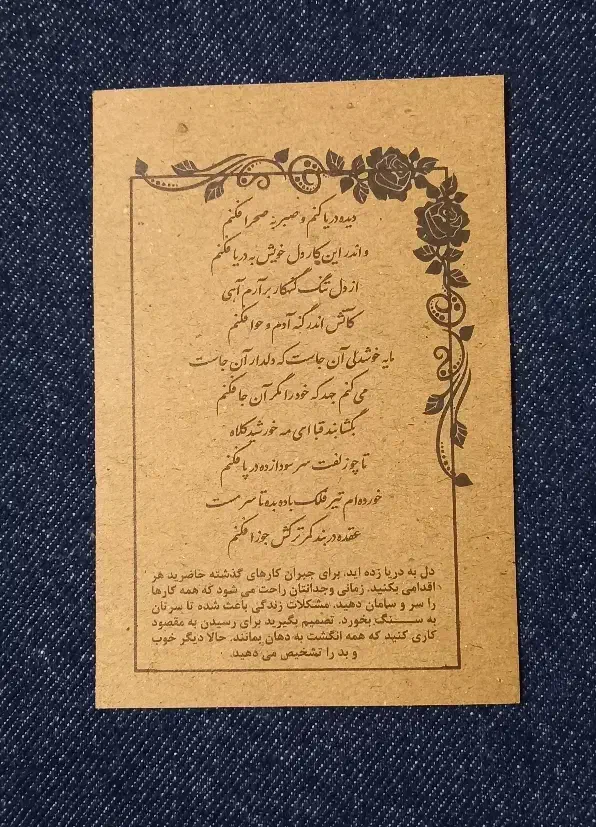 دیده دریا کنم و صبر به صحرا فکنم
واندر این کار دل خویش به دریا فکنم
از دل تنگ گنهکار برآرم آهی
کآتش اندر گنه آدم و حوا فکنم
مایه خوشدلی آن جاست که دلدار آن جاست
می کنم جهد که خود را مگر آن جا فکنم
بگشا بند قبا ای مه خورشید کلاه
تا چو زلفت سر سودازده در پا فکنم
خورده ام تیر فلک باده بده تا سرمست
عقده در بند کمر ترکش جوزا فکنم
دل به دریا زده اید، برای جبران کارهای گذشته حاضرید هر
اقدامی بکنید. زمانی وجدانتان راحت می شود که همه کارها
را سر و سامان دهید. مشکلات زندگی باعث شده تا سرتان
به سنگ بخورد. تصمیم بگیرید برای رسیدن به مقصود
کاری کنید که همه انگشت به دهان بمانند. حالا دیگر خوب
و بد را تشخیص می دهید.